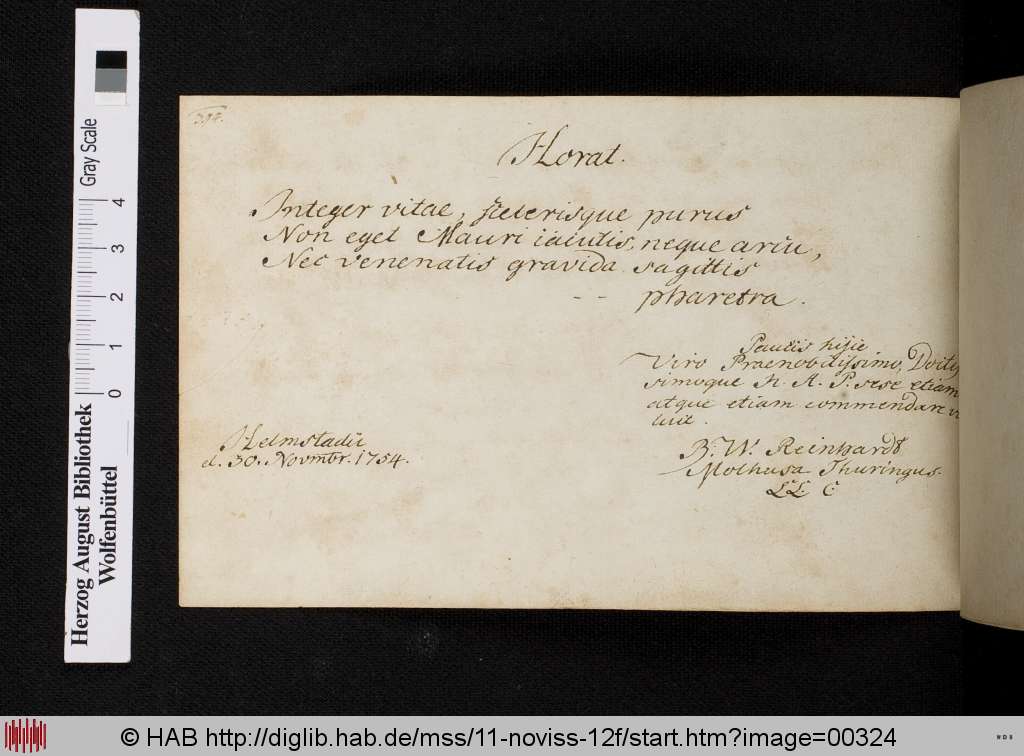 394.
Horat.
Integer vitae, scelerisque purus
Non eget Mauri iaculis, neque arcu,
Nec venenatis gravida sagittis
-- pharetra.
Paucis hisce
Viro Praenobilissimo, Doctis
simoque H. A. P. sese etiam
atque etiam commendare v
luit.
Helmstadii
d. 30. Novmbr. 1754.
B. W. Reinhardt
Molhusa Thuringus.
LL. C.
Herzog August Bibliothek
Wolfenbüttel
Gray Scale
0 1 2 3 4
© HAB http://diglib.hab.de/mss/11-noviss-12f/start.htm?image=00324
WDB